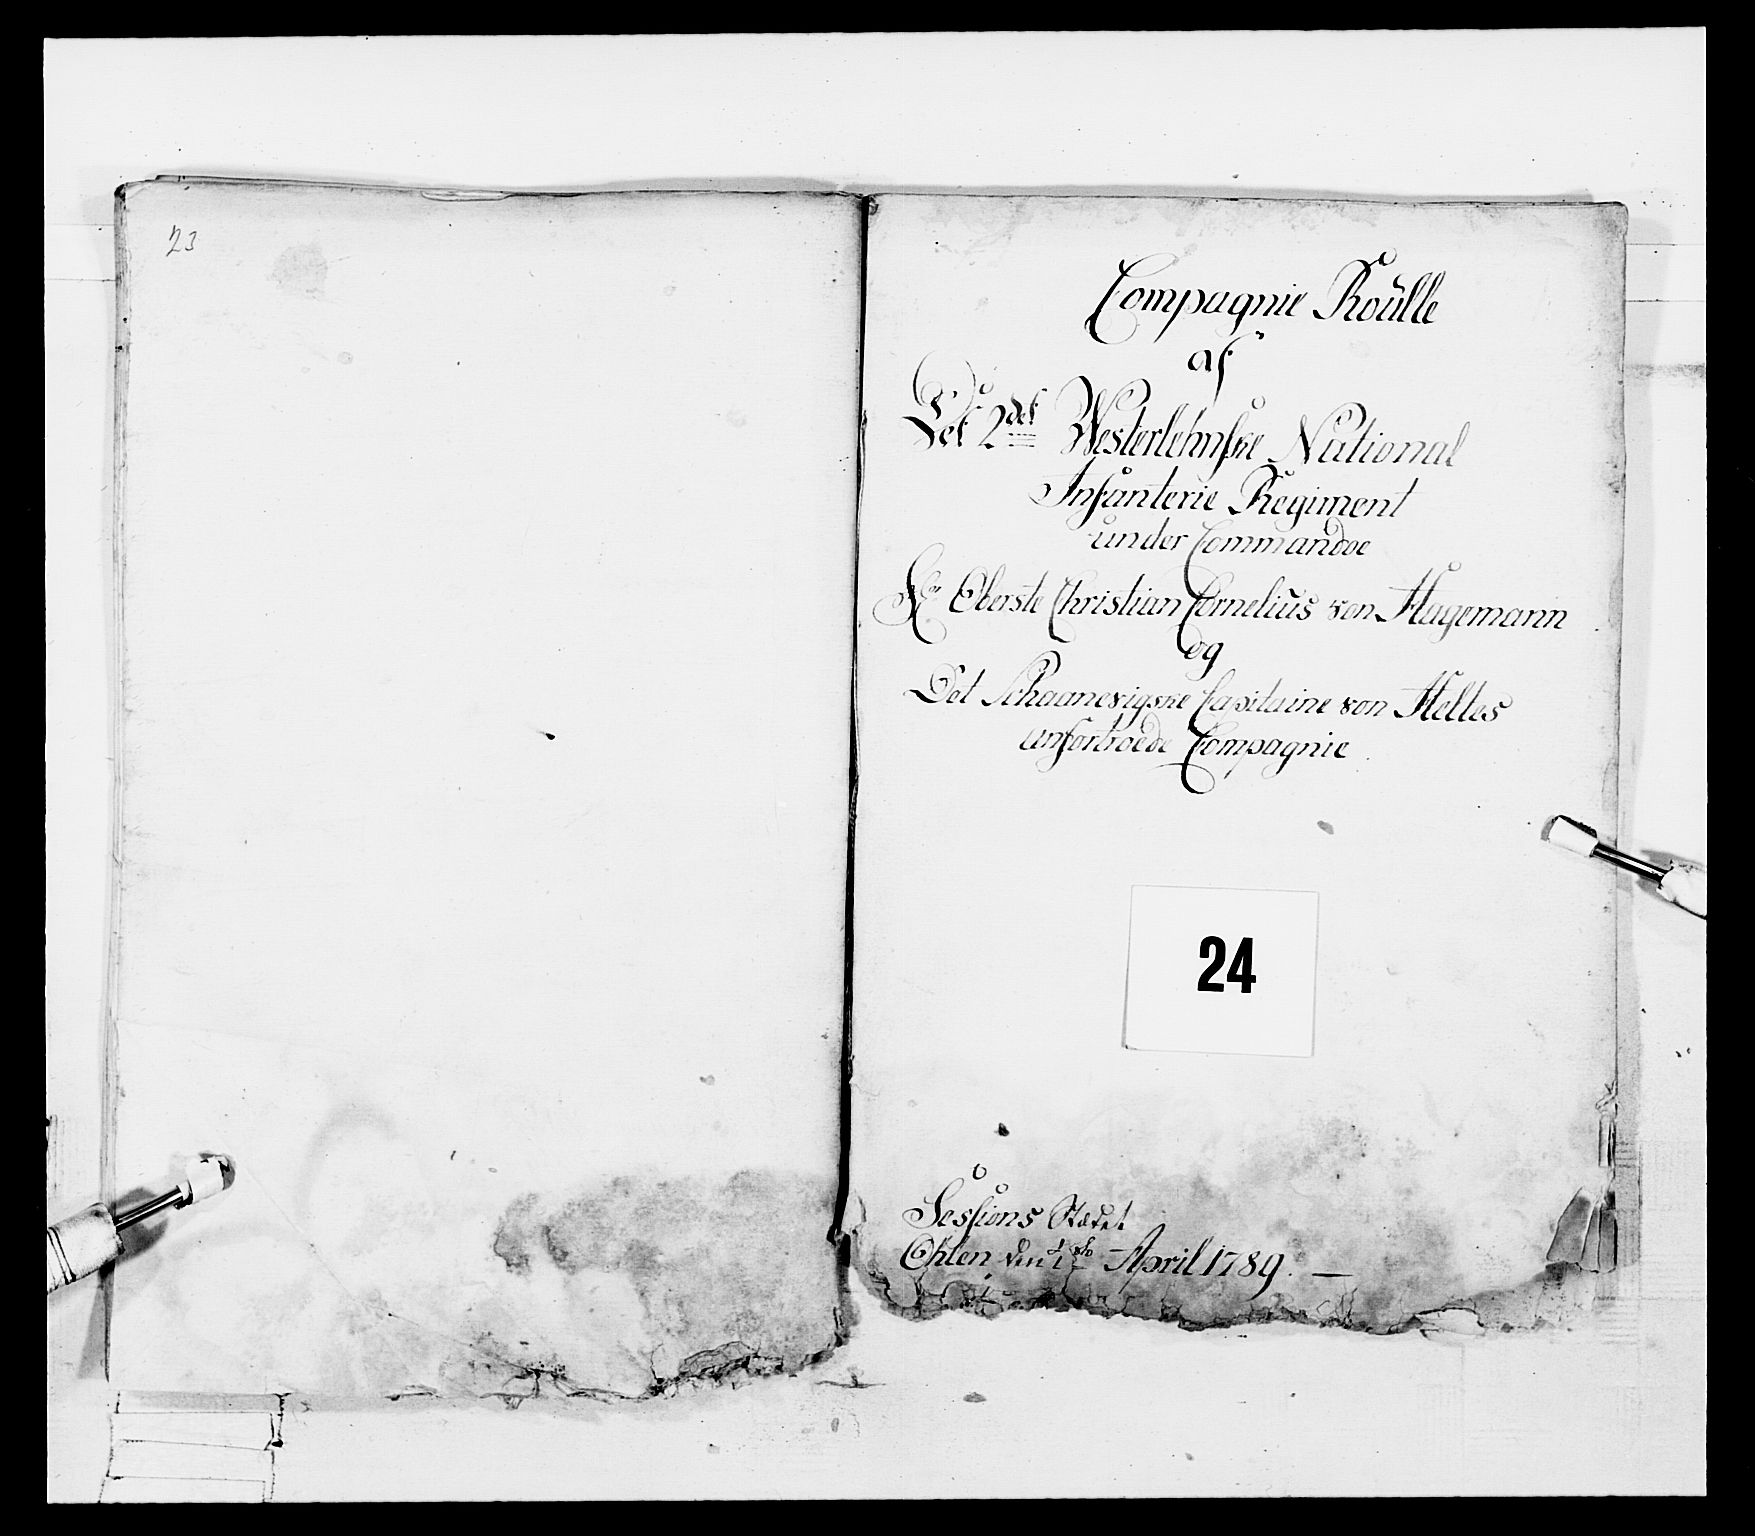 23
Compagnie Roulle
af
Det 2det Westerlehnske National
Infanterie Regiment
under Commandoe
Hr Oberste Christian Cornelius von Hagemann
og
Det Schaanevigske Capitaine von Heltes
anfortroede Compagnie
24
Sessions Stædet
Ohlen den April 1789. —